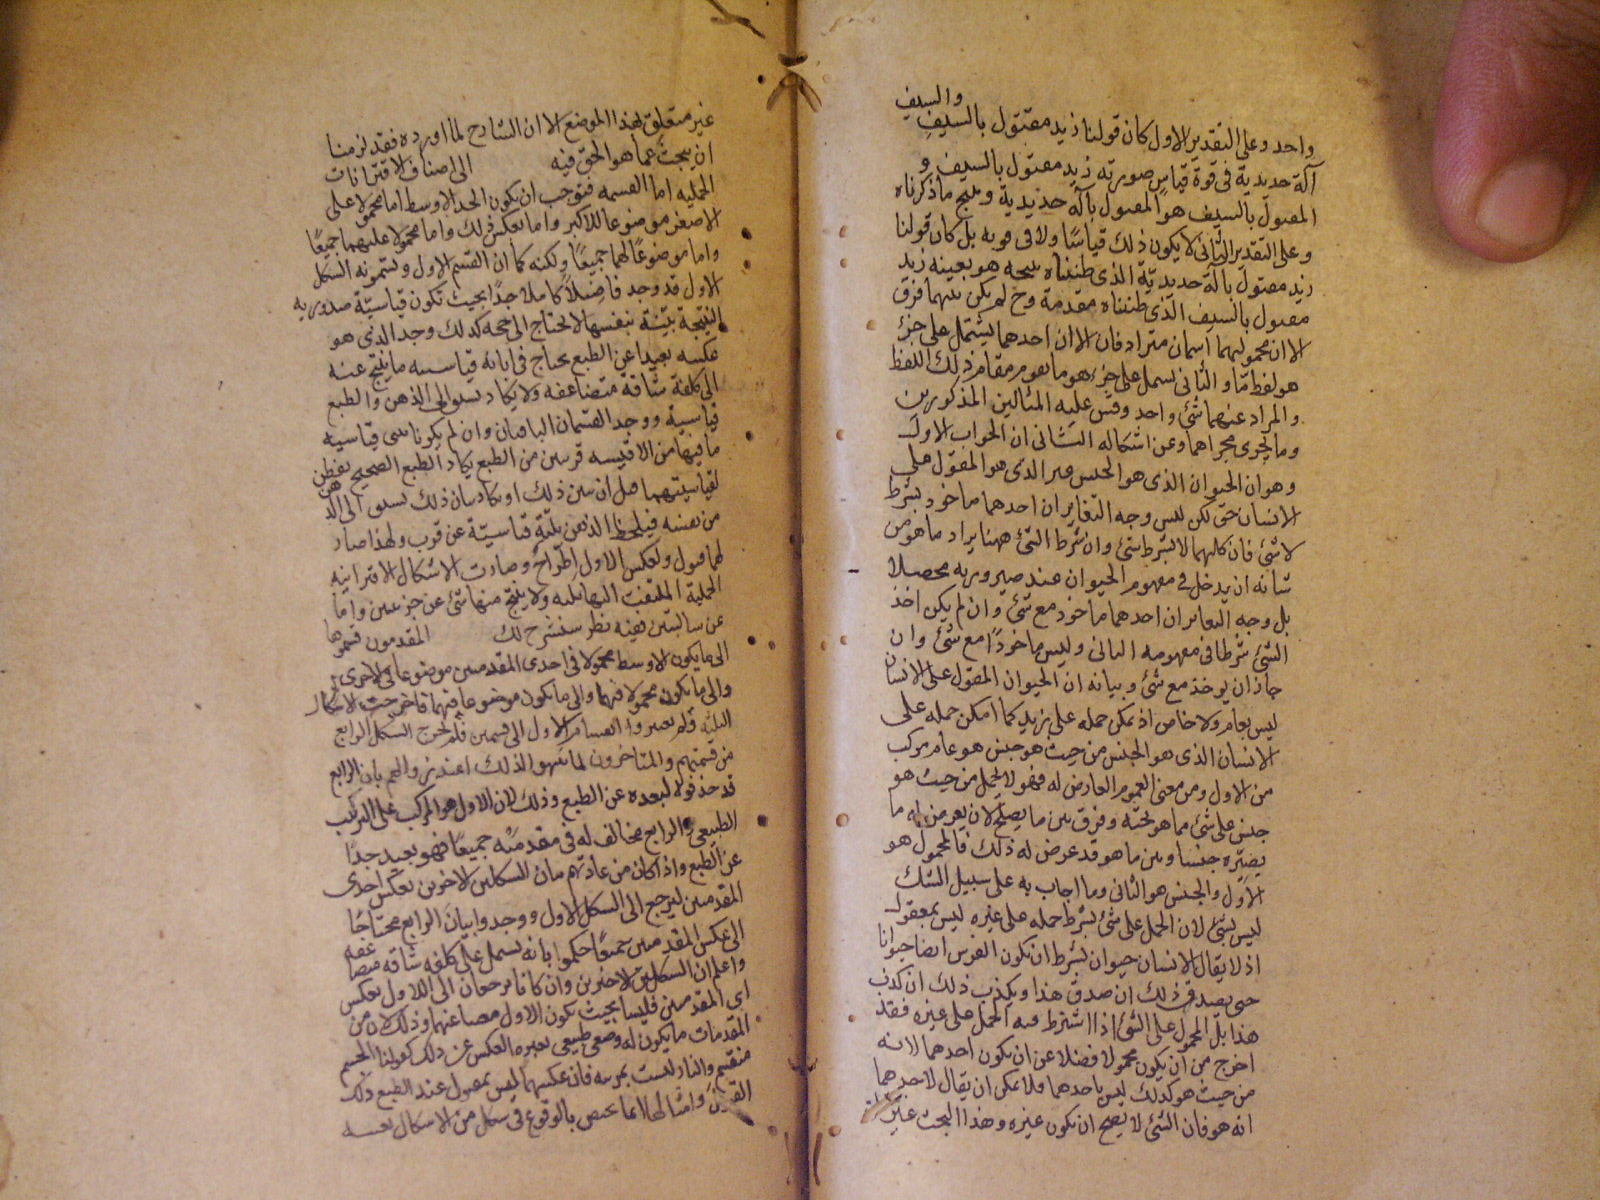 والسيف
واحد وعلى التقدير الاول كان قولنا زيد مقتول بالسيف
آلة حديدية فى قوة قياس صورته زيد مقتول بالسيف و
المقتول بالسيف هو المقتول بآلة حديدية وينتج ما ذكرناه
وعلى التقدير الثانى لا يكون ذلك قياسًا ولا فى قوته بل كان قولنا
زيد مقتول بآلة حديديّة الذى ظنناه نتيجه هو بعينه زيد
مقتول بالسيف الذى ظنناه مقدمة وح لم يكن بينهما فرق
الا ان محموليهما اسمان مترادفان الا ان احدهما يشتمل على جزء
هو لفظ مّا والثانى يشتمل على جزء هو ما يقوم مقام ذلك اللفظ
والمراد عنهما شئ واحد وقس عليه المثالين المذكورين
وما يجرى مجراهما وعن اشكاله الثانى ان الجواب الاول
وهو ان الحيوان الذى هو الجنس غير الذى هو المقول على
الانسان حق لكن ليس وجه التغاير ان احدهما ماخوذ بشرط
لا شئ فان كليهما لا بشرط شئ وان شرط الشئ ههنا يراد ما هو من
شانه ان يدخل فى مفهوم الحيوان عند صيرورته محصلا
بل وجه التغاير ان احدهما ماخوذ مع شئ وان لم يكن اخذ
الشئ شرطا فى مفهومه الثانى وليس ماخوذًا مع شئ وان
جاز ان يوخذ مع شئ وبيانه ان الحيوان المقول على الانسان
ليس بعام ولا خاص اذ يمكن حمله على زيد كما امكن حمله على
الانسان الذى هو الجنس من حيث هو جنس هو عام مركب
من الاول ومن معنى العموم العارض له فهو لا يحمل من حيث هو
جنس على شئ مما هو تحته وفرق بين ما يصلح لان يعرض له ما
يصيّره جنسا وبين ما هو قد عرض له ذلك فالمحمول هو
الاول والجنس هو الثانى وما اجاب به على سبيل الشك
ليس بشئ لان الحمل على شئ بشرط حمله على غيره ليس بمعقول
اذ لا يقال الانسان حيوان بشرط ان يكون الفرس ايضا حيوانا
حتى يصدق ذلك ان صدق هذا ويكذب ذلك ان كذب
هذا بل المحمول على الشئ اذا اشترط فيه الحمل على غيره فقد
اخرج من ان يكون محمولا فضلا عن ان يكون احدهما لانه
من حيث هو كذلك ليس باحدهما فلا يمكن ان يقال لاحدهما
انه هو فان الشئ لا يصح ان يكون غيره وهذا البحث غير
غير متعلق بهذا الموضع الا ان الشارح لما اورده فقد لزمنا
ان يبحث عما هو الحق فيه الى اصناف الاقترانات
الحمليه اما القسمه فتوجب ان يكون الحد الاوسط اما محمولا على
الاصغر موضوعا للاكبر واما بعكس ذلك واما محمولا عليهما جميعًا
واما موضوعًا لهما جميعًا ولكنه كما ان القسم الاول ويسمونه الشكل
الاول قد وجد فاضلاً كاملا جدًا بحيث تكون قياسيّة ضروريه
النتيجة بيّنة بنفسها لا يحتاج الى حجه كذلك وجد الذى هو
عكسه بعيدا عن الطبع يحتاج فى ابانة قياسيته ما ينتج عنه
الى كلفة شاقة متضاعفه ولا يكاد يسبق الى الذهن والطبع
قياسيته ووجد القسمان الباقيان وان لم يكونا بينى قياسيه
ما فيهما من الاقيسه قريبين من الطبع يكاد الطبع الصحيح يفطن
لقياسيتهما قبل ان يبين ذلك او يكاد بيان ذلك يسبق الى الذهن
من نفسه فيلحظ الذهن بيّنة قياسيّة عن قرب ولهذا صار
لهما قبول ولعكس الاول اطّراح وصارت الاشكال الاقترانيه
الحملية الملتفت اليها ثلثه ولا ينتج منها شئ عن جزئيتين واما
عن سالبتين ففيه نظر سنشرح لك المقدمون قسموها
الى ما يكون الاوسط محمولا فى احدى المقدمتين موضوعا فى الاخرى
والى ما يكون محمولا فيهما والى ما يكون موضوعا فيهما فاخرجت الاشكال
الثلثة ولم يعتبروا انقسام الاول الى قسمين فلم يخرج الشكل الرابع
من قسمتهم والمتاخرون لما تنبهوا لذلك اعتذروا لهم بان الرابع
قد حذفوه لبعده عن الطبع وذلك لان الاول هو المركب على الترتيب
الطبيعى والرابع مخالف له فى مقدمتيه جميعًا فهو بعيد جدًا
عن الطبع واذا كان من عادتهم بيان الشكلين الاخرين بعكس احدى
المقدمتين ليرجع الى الشكل الاول ووجدوا بيان الرابع محتاجًا
الى عكس المقدمتين جميعًا حكموا بانه يشتمل على كلفه شاقه متضاعفه
واعلم ان الشكلين الاخيرين وان كانا يرجعان الى الاول بعكس
احدى المقدمتين فليسا بحيث يكون الاول مغنيا عنهما وذلك لان من
المقدمات ما يكون له وضعى طبيعى يغيره العكس عن ذلك كقولنا الجسم
منقسم والنار ليست بمرئيه فان عكسهما ليس بمقبول عند الطبع ذلك
القبول وامثالها انما يختص بالوقوع فى شكل من الاشكال بعينه